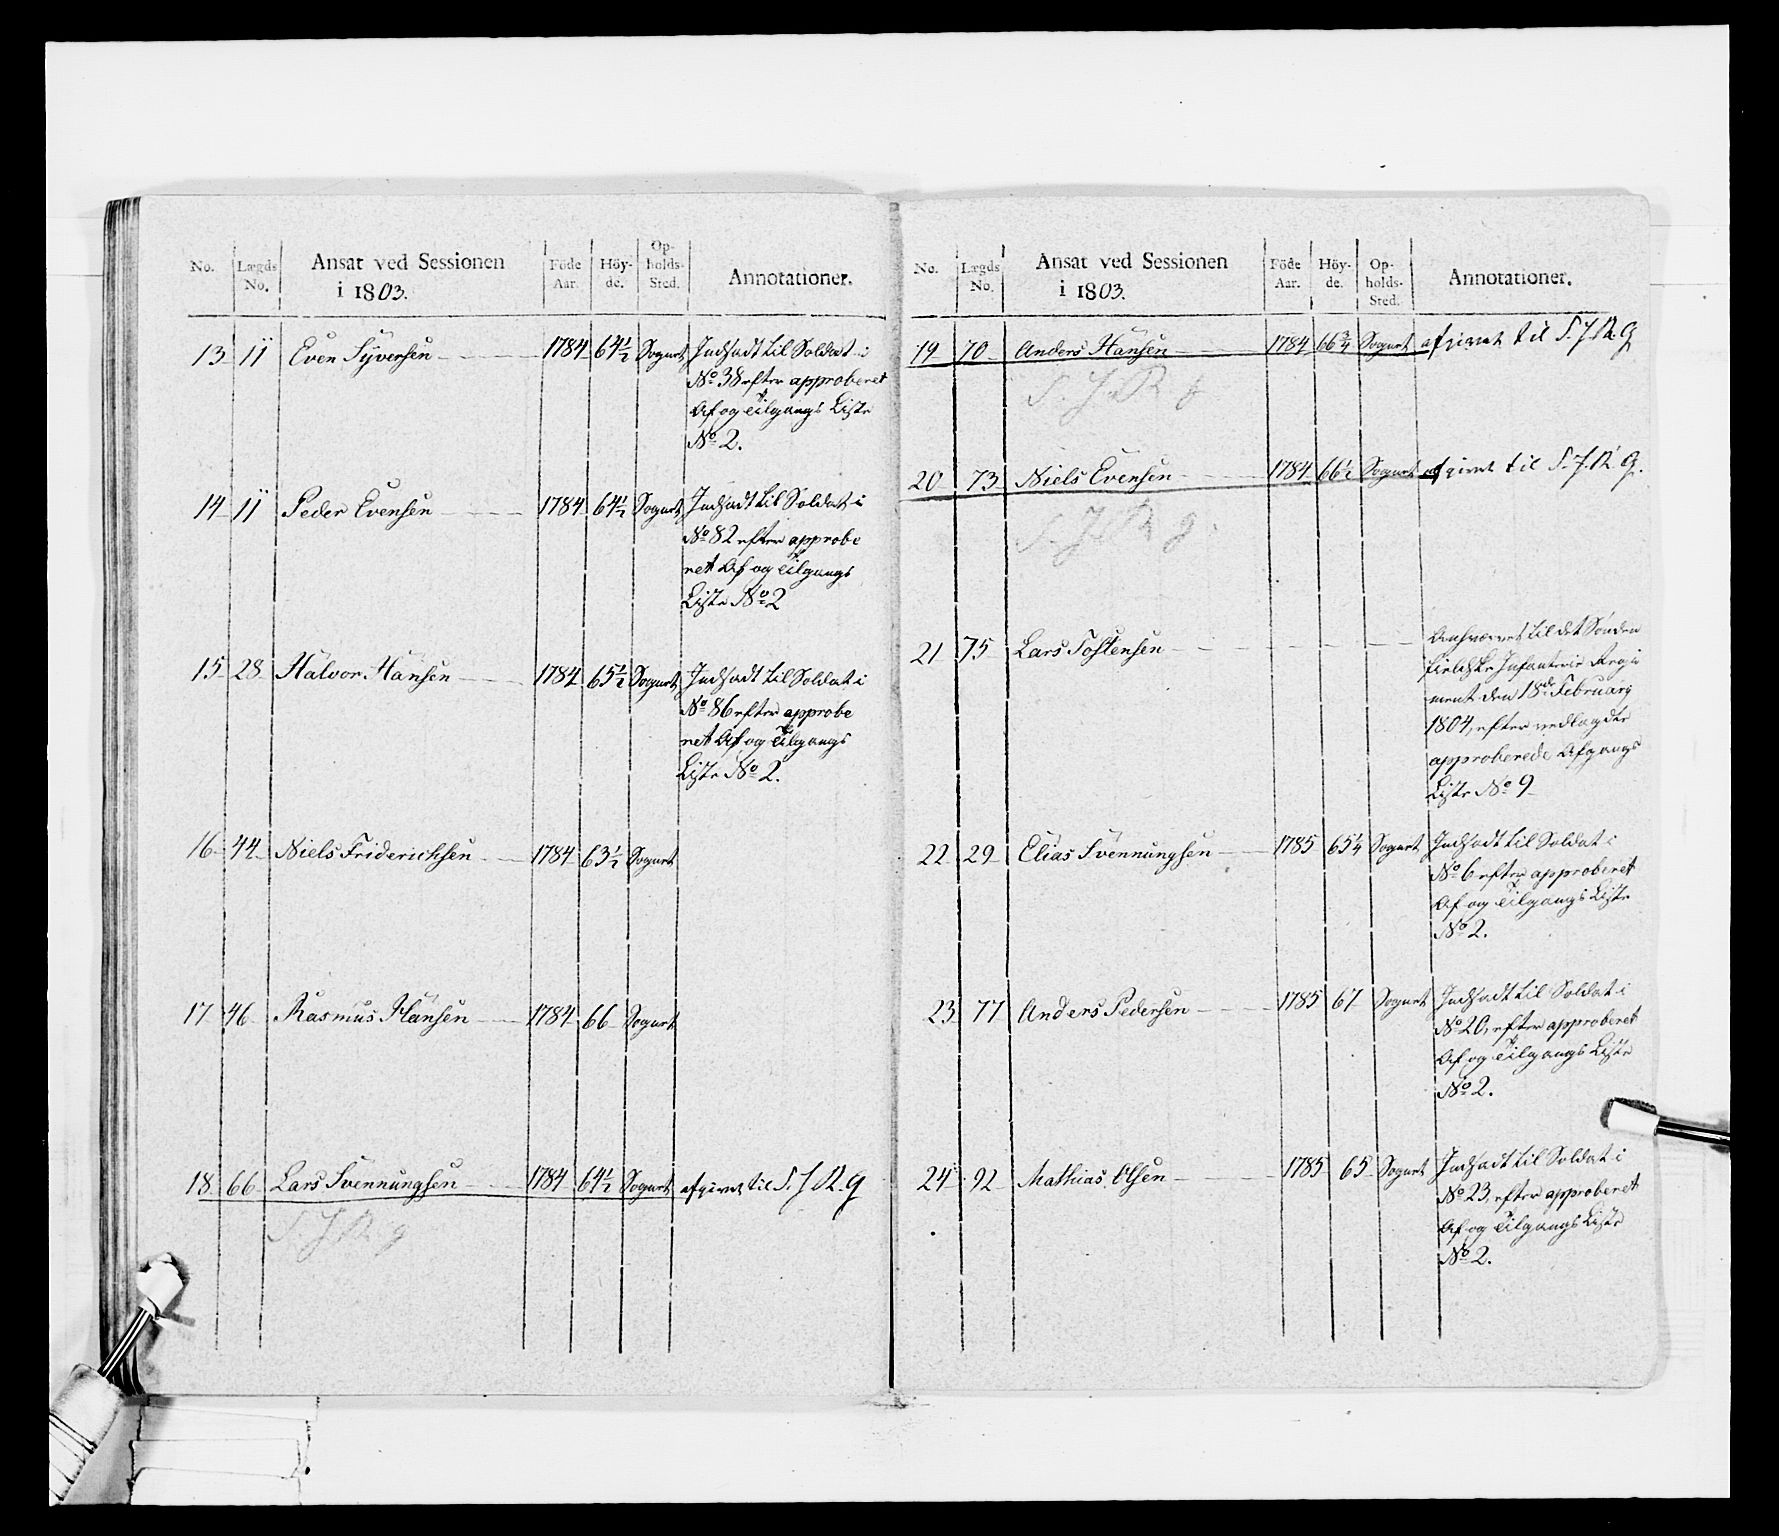 No. Lægds No. Ansat ved Sessionen i 1803. Föde Aar. Höy-de. Op-holds-Sted. Annotationer.
13 11 Even Syversen 1784 64½ Sognet Indsadt til Soldat i
No 38 efter approberet
Af og Tilgangs Liste
No 2.
14 11 Peder Evensen 1784 64½ Sognet Indsadt til Soldat i
No 82 efter approbe
ret Af og Tilgangs
Liste No 2
15 28 Halvor Hansen 1784 65½ Sognet Indsadt til Soldat i
No 86 efter approbe
ret Af og Tilgangs
Liste No 2.
16 44 Niels Friderichsen 1784 63½ Sognet
17 46 Rasmus Hansen 1784 66 Sognet
18 66 Lars Svennungsen 1784 64½ Sognet afgivet til S. J. R. g
S. J. R. g
No. Lægds No. Ansat ved Sessionen i 1803. Föde Aar. Höy-de. Op-holds-Sted. Annotationer.
19 70 Anders Hansen 1784 66¾ Sognet afgivet til S. J. R. g
S. J. R. g
20 73 Niels Evensen 1784 66½ Sognet afgivet til S. J. R. g.
S. J. R. g.
21 75 Lars Tostensen Anhvervet til det Sönden
fieldske Infanterie Regi
ment den 18de Februarij
1804, efter vedlagde
approberede Afgangs
Liste No 9
22 29 Elias Svennungsen 1785 65¼ Sognet Indsadt til Soldat i
No 6 efter approberet
Af og Tilgangs Liste
No 2.
23 77 Anders Pedersen 1785 67 Sognet Indsadt til Soldat i
No 20, efter approberet
Af og Tilgangs Liste
No 2.
24 92 Mathias Olsen 1785 65 Sognet Indsadt til Soldat i
No 23, efter approberet
Af og Tilgangs Liste
No 2.